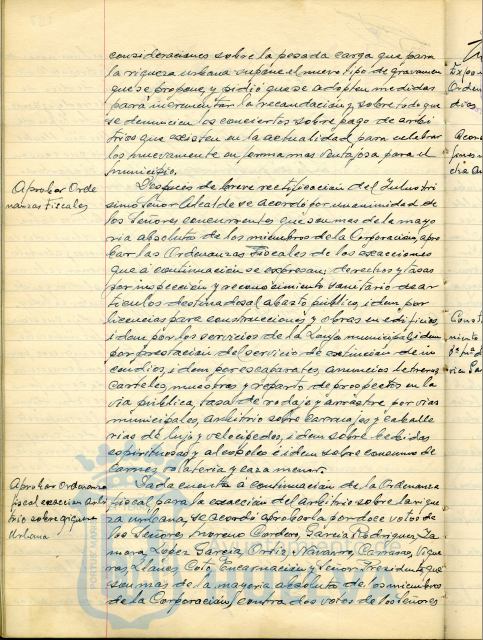 consideraciones sobre la pesada carga que para
la riqueza urbana supone el nuevo tipo de gravamen
que se propone, y pidió que se adopten medidas
para incrementar la recaudación y sobre todo que
se denuncien los conciertos sobre pago de arbi
trios que existen en la actualidad para celebrar
los nuevamente en forma mas ventajosa para el
municipio.
Aprobar Orde
nanzas Fiscales
Despues de breve rectificación del Ilustri
simo Señor Alcalde se acordó por unanimidad de
los Señores concurrentes que son mas de la mayo
ria absoluta de los miembros de la Corporación, apro
bar las Ordenanzas Fiscales de las exacciones
que a continuación se expresan; derechos y tasas
por inspección y reconocimiento sanitario de ar
ticulos destinados al abasto público, idem por
licencias para construcciones y obras en edificios,
idem por los servicios de la Lonja municipal; idem
por prestación del servicio de extinción de in
cendios, idem por escaparates, anuncios letreros
carteles, muestras y reparto de prospectos en la
via pública, tasa de rodaje y arrastre por vias
municipales, arbitrio sobre carruajes y caballe
rias de lujo y velocipedos, idem sobre bebidas
espirituosas y alcoholes e idem sobre consumo de
carnes volateria y caza menor.
Aprobar Ordenanza
fiscal exacción arbi
trio sobre riqueza
Urbana
Dada cuenta a continuación de la Ordenanza
fiscal para la exacción del arbitrio sobre la rique
za urbana, se acordó aprobarla por doce votos de
los Señores Moreno Cordero, García Rodriguez, Za
mora, Lopez García Ortiz, Navarro, Carrasco, Figue
ras, Llanes Coto, Encarnación y Señor Presidente que
son mas de la mayoria absoluta de los miembros
de la Corporación, contra dos votos de los Señores